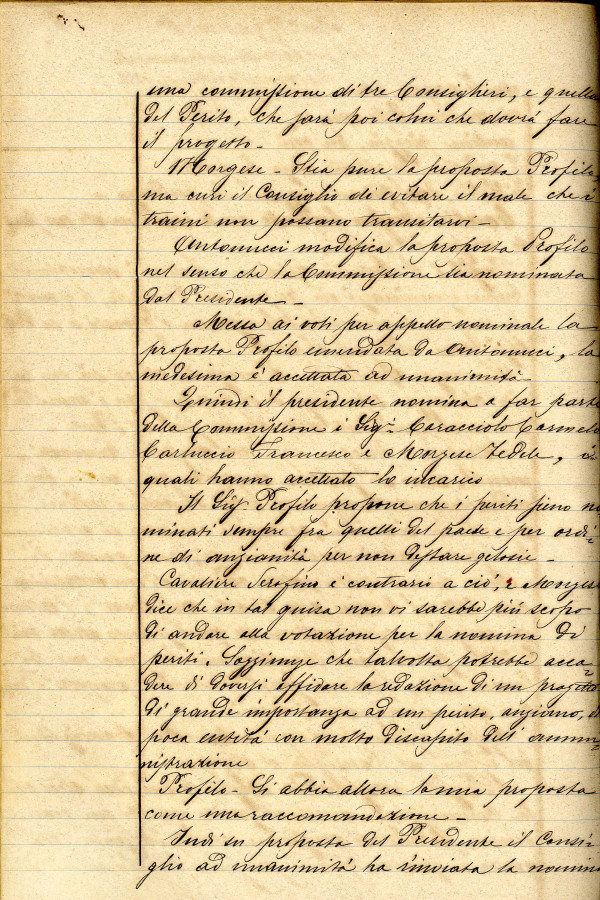 una commissione di tre Consiglieri, e quella
del Perito, che sarà poi colui che dovrà fare
il progetto -
Morgese - Stia pure la proposta Profilo
ma curi il Consiglio di evitare il male che i
traini non possano transitarvi -
Antonucci modifica la proposta Profilo
nel senso che la Commissione sia nominata
dal Presidente -
Messa ai voti per appello nominale la
proposta Profilo emendata da Antonucci, la
medesima è accettata ad unanimità -
Quindi il presidente nomina a far parte
della Commissione i Sigri Caracciolo Carmelo
Carluccio Francesco e Morgese Fedele, i
quali hanno accettato lo incarico
Il Sigr Profilo propone che i periti sieno no
minati sempre fra quelli del paese e per ordi=
ne di anzianità per non destare gelosie -
Cavaliere Serafino è contrario a ciò, e Morgese
dice che in tal guisa non vi sarebbe più scopo
di andare alla votazione per la nomina di
periti. Soggiunge che talvolta potrebbe acca=
dere di doversi affidare la redazione di un progetto
di grande importanza ad un perito, anziano, di
poca entità con molto discapito dell'ammi=
nistrazione
Profilo - Si abbia allora la mia proposta
come una raccomandazione -
Indi su proposta del Presidente il Consi=
glio ad unanimità ha rinviata la nomina